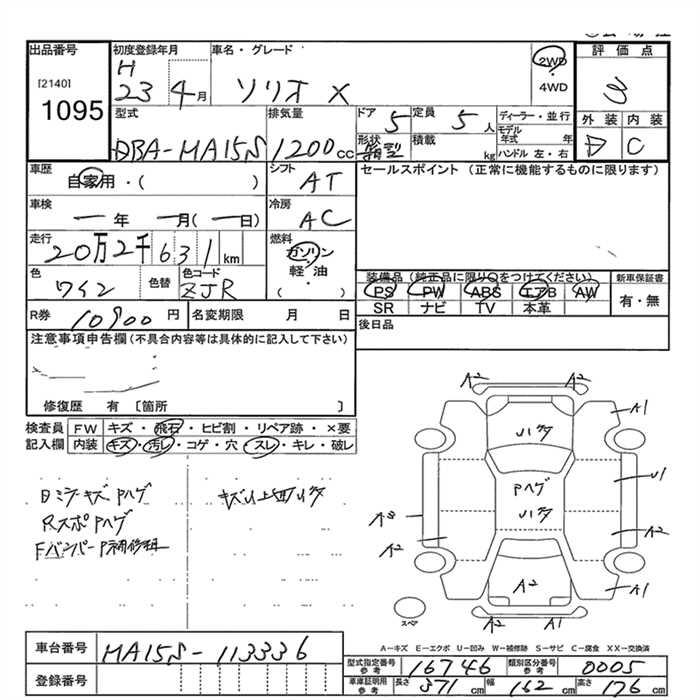 出品番号 初度登録年月 車名・グレード 評価点
[2140] H 23 4月 ソリオ X 2WD ・ 4WD 3
1095
型式 排気量 ドア 5 定員 5人 ディーラー・並行 外装 内装
DBA-MA15S 1200cc 形状 箱型 積載 kg モデル年式 年 ハンドル 左・右 D C
車歴 自家用・( ) シフト AT セールスポイント (正常に機能するものに限ります)
車検 ー年 ー月(ー日) 冷房 AC
走行 20万2千631km 燃料 ガソリン・軽油 ( )
色 ワイン 色替 色コード ZJR
装備品 (純正品に限り○をつけてください) 新車保証書
PS PW ABS エアB AW 有・無
SR ナビ TV 本革
R券 10900円 名変期限 月 日 後日品
注意事項申告欄(不具合内容等は具体的に記入して下さい)
修復歴 有 〔箇所 〕
検査員 FW キズ・飛石・ヒビ割・リペア跡・×要
記入欄 内装 キズ・汚レ・コゲ・穴・スレ・キレ・破レ
A2 A2
A1
U1
A2 A2
A2
A1
A2 A1
スペア
Pハゲ
RスポPハゲ
A-キズ E-エクボ U-凹み W-補修跡 S-サビ C-腐食 XX-交換済
車台番号 MA15S-113336
型式指定番号 参考 16746 類別区分番号 参考 0005
登録番号
車庫証明用 参考 長さ 371cm 幅 162cm 高さ 176cm